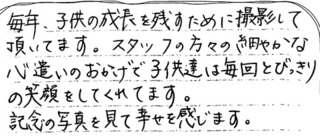 毎年、子供の成長を残すために撮影して
頂いてます。スタッフの方々の細やかな
心遣いのおかげで子供達は毎回とびっきり
の笑顔をしてくれてます。
記念の写真を見て幸せを感じます。